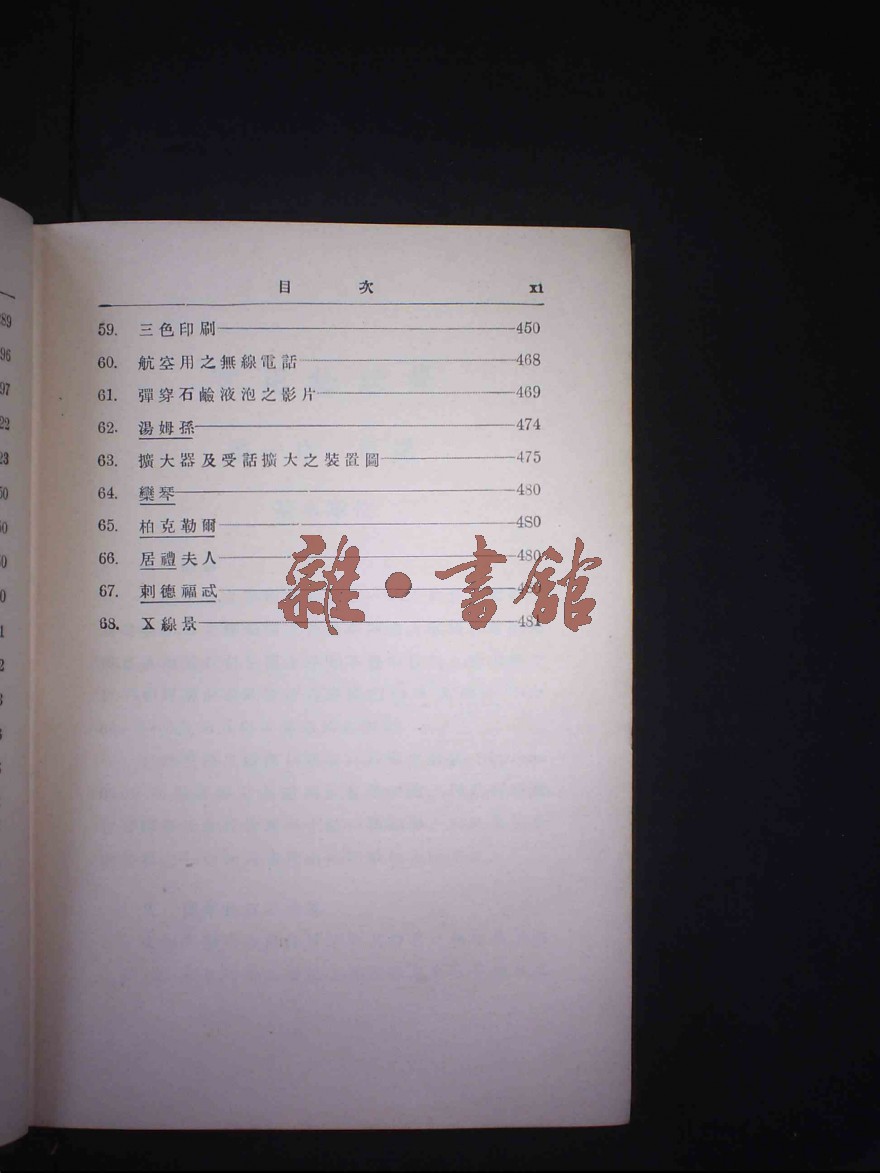 目 次 xi
59. 三色印刷 450
60. 航空用之無線電話 468
61. 彈穿石鹼液泡之影片 469
62. 湯姆孫 474
63. 擴大器及受話擴大之裝置圖 475
64. 欒琴 480
65. 柏克勒爾 480
66. 居禮夫人 480
67. 剌德福忒 480
68. X線景 481
雜·書館
89
96
97
22
23
50
50
50